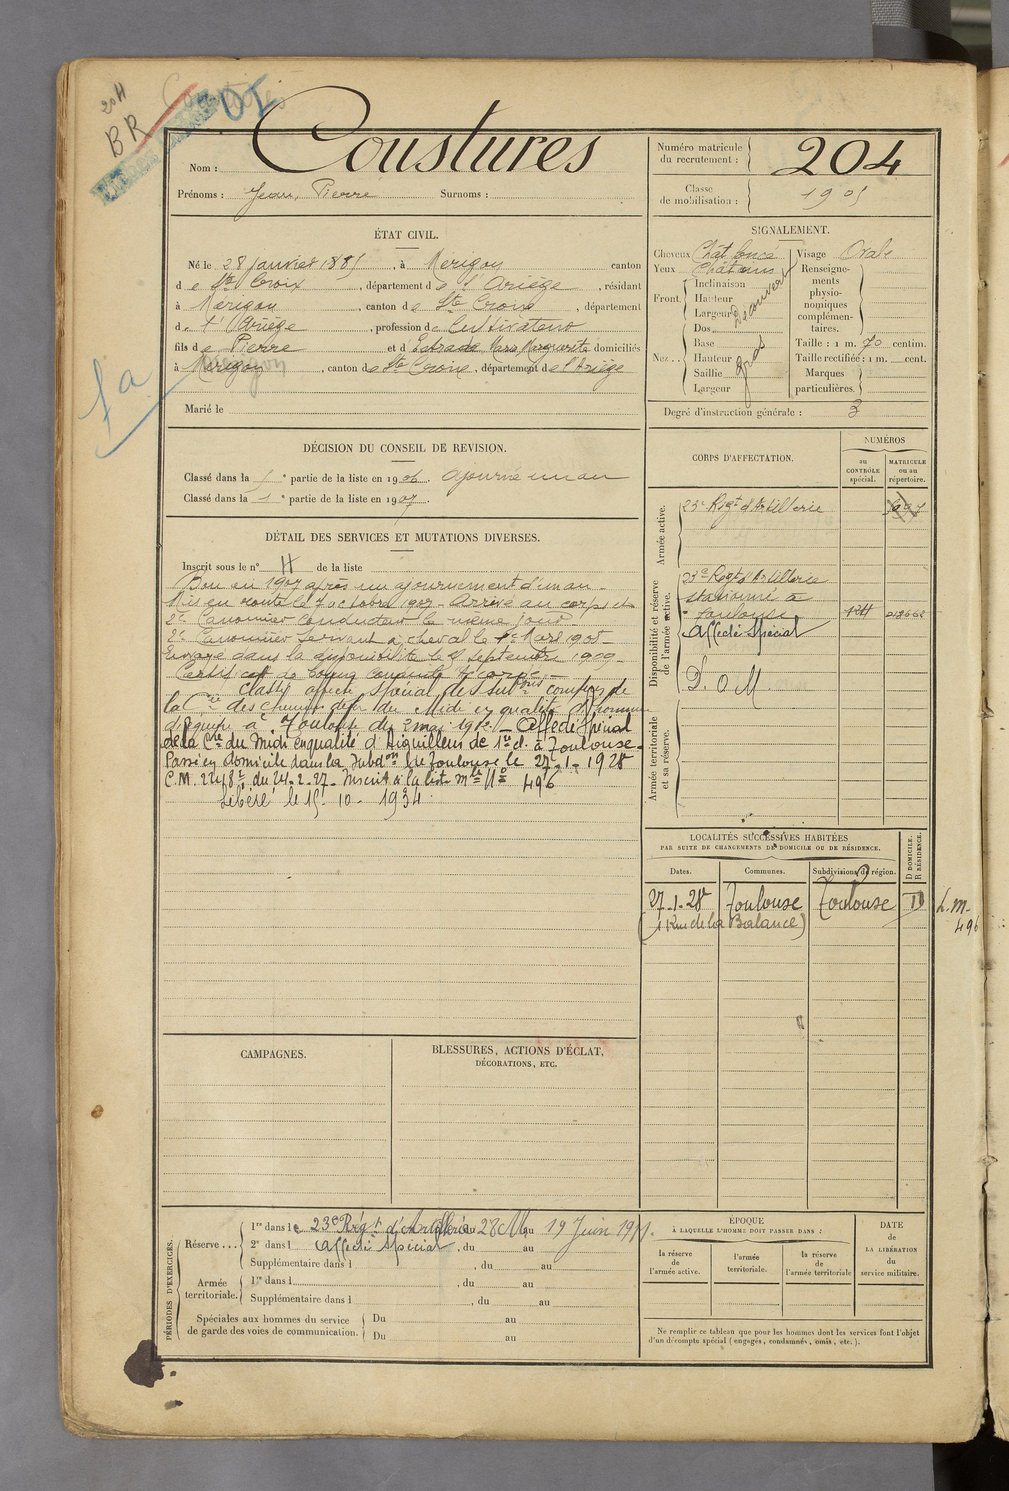 20 H
BR
OI
fa
Nom : Coustures
Prénoms : Jean, Pierre Surnoms :
Numéro matricule du recrutement : 204
Classe de mobilisation : 1905
ÉTAT CIVIL.
Né le 28 janvier 1885, à Mérigon canton
de Ste Croix, département de l'Ariège, résidant
à Mérigon, canton de Ste Croix, département
de l'Ariège, profession de Cultivateur
fils de Pierre et d'Estrade, Marguerite domiciliés
à Mérigon, canton de Ste Croix, département de l'Ariège
Marié le
SIGNALEMENT.
Cheveux Chât foncé
Yeux Châtains
Front. Inclinaison
Hauteur
Largeur Découvert
Nez. Dos
Base
Hauteur gros
Saillie
Largeur
Visage Ovale
Renseignements physionomiques complémentaires.
Taille : 1 m. 70 centim.
Taille rectifiée : 1 m. cent.
Marques particulières.
Degré d'instruction générale : 3
DÉCISION DU CONSEIL DE REVISION.
Classé dans la 5e partie de la liste en 1906. ajourné un an
Classé dans la 1e partie de la liste en 1907.
DÉTAIL DES SERVICES ET MUTATIONS DIVERSES.
Inscrit sous le n° 11 de la liste
Bon en 1907 après un ajournement d'un an
Mis en route le 7 octobre 1907. Arrivé au corps et
2e Canonnier Conducteur le même jour
2e Canonnier Servant à cheval le 1er Mars 1908
Envoyé dans la disponibilité le septembre 1909
Certificat de bonne conduite Accordé.
Classé affecté spécial des subons complres de
la Cie des chemins de fer du Midi en qualité d'homme
d'équipe à Toulouse du 2 mai 1912. Affecté Spécial
de la Cie du Midi en qualité d'Aiguilleur de 1re cl. à Toulouse.
Passé en domicile dans la Subdon de Toulouse le 27-1-1928
C.M. du 24-2-27. Inscrit à la liste mle No 496
Libéré le 15-10-1934
CORPS D'AFFECTATION.
NUMÉROS
au CONTRÔLE spécial.
MATRICULE ou au répertoire.
Armée active.
23e Regt d'Artillerie
Disponibilité et réserve de l'armée active.
23e Regt d'Artillerie
stationné à
Toulouse
Affecté Spécial
P. O M.
Armée territoriale et sa réserve.
LOCALITÉS SUCCESSIVES HABITÉES
PAR SUITE DE CHANGEMENTS DE DOMICILE OU DE RÉSIDENCE.
Dates. Communes. Subdivisions de région. D DOMICILE. R RÉSIDENCE.
27-1-28 Toulouse Toulouse D
(1 Rue de la Balance)
L.m.
496
CAMPAGNES.
BLESSURES, ACTIONS D'ÉCLAT,
DÉCORATIONS, ETC.
PÉRIODES D'EXERCICES.
Réserve... 1re dans le 23e Régt d'Artillerie du 28 Mai au 19 Juin 1911.
2e dans l Affecté Spécial, du au
Supplémentaire dans l , du au
Armée territoriale. 1re dans l , du au
Supplémentaire dans l , du au
Spéciales aux hommes du service de garde des voies de communication. Du au
Du au
ÉPOQUE
À LAQUELLE L'HOMME DOIT PASSER DANS :
la réserve de l'armée active.
l'armée territoriale.
la réserve de l'armée territoriale
DATE de LA LIBÉRATION du service militaire.
Ne remplir ce tableau que pour les hommes dont les services font l'objet
d'un décompte spécial (engagés, condamnés, omis, etc.).